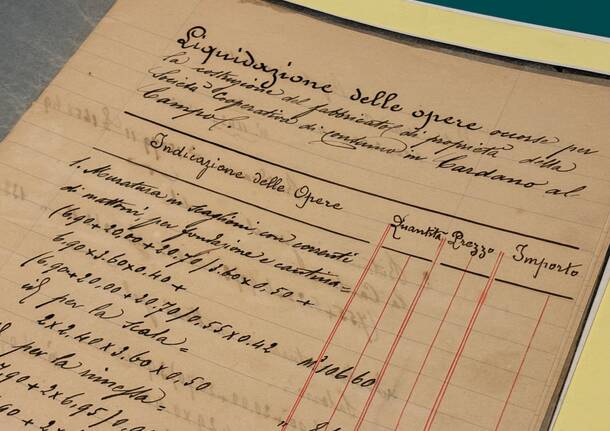 Liquidazione delle opere occorse per
la costruzione del fabbricato di proprietà della
Società Cooperativa di consumo in Cardano al
Campo
Indicazione delle Opere
Quantità Prezzo Importo
1. Muratura in con corsi
di mattoni per fondazione e cantina =
(6.90+20.00+20.70)3.60x0.50+
6.90x3.60x0.40+
(6.90+20.00+20.70)0.55x0.42 m³ 106 60
id per la scala =
2x2.40x3.60x0.50
per la rimessa =
7.90+2x6.95)0.